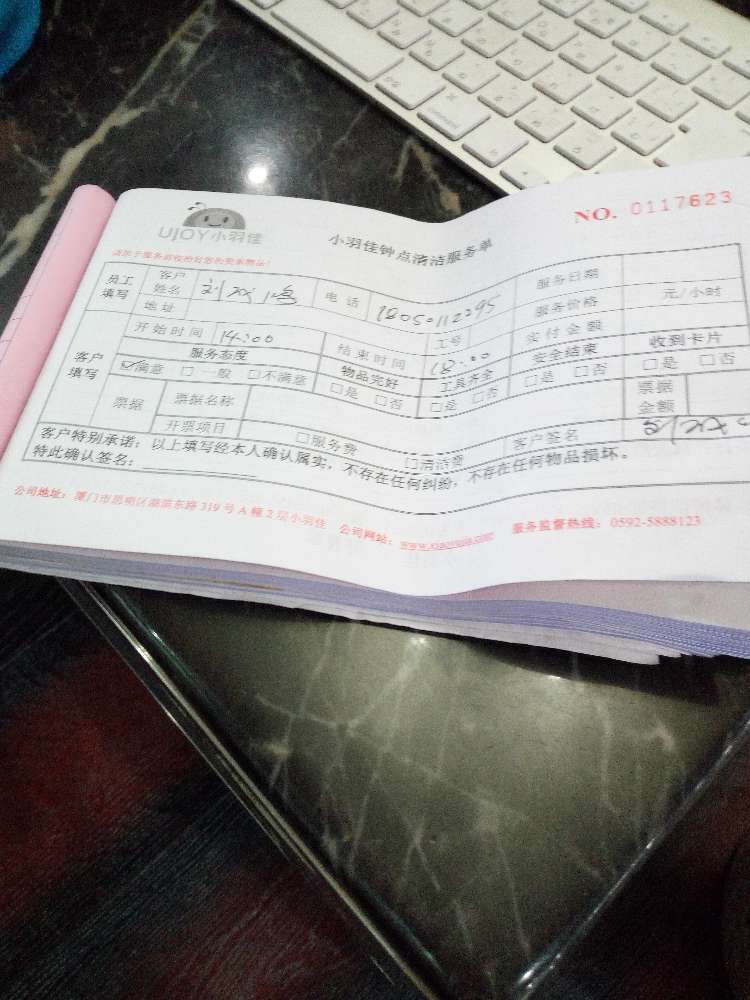 UJOY小羽佳
小羽佳钟点清洁服务单
NO. 0117623
员工填写 客户姓名 电话 18050112295 服务日期
地址 工号 服务价格 元/小时
客户填写 开始时间 14:00 结束时间 18:00 实付金额
服务态度 物品完好 工具齐全 安全结束 收到卡片
☑满意 □一般 □不满意 □是 □否 □是 □否 □是 □否 □是 □否
票据 票据名称 票据金额
开票项目 □服务费 □清洁费 客户签名
客户特别承诺:以上填写经本人确认属实,不存在任何纠纷,不存在任何物品损坏。
特此确认签名:
公司地址:厦门市思明区湖滨东路319号A幢2层小羽佳 公司网站: 服务监督热线:0592-5888123